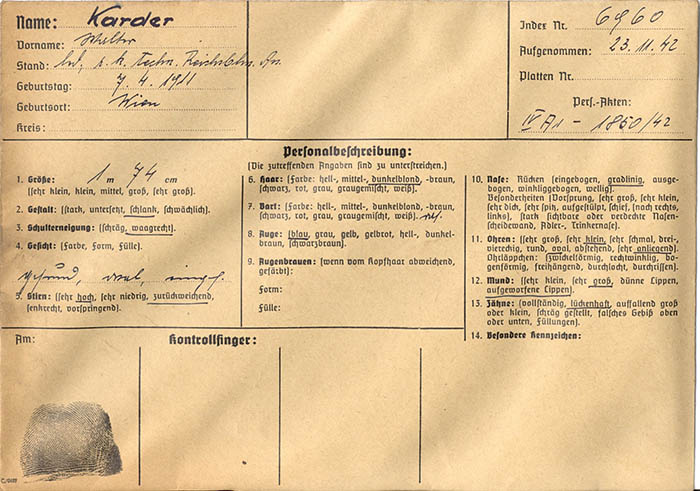 Name: Karder
Vorname: Walter
Stand: led., r. k. Techn. Reichsbhn.
Geburtstag: 7. 4. 1911
Geburtsort: Wien
Kreis:
Index Nr. 6960
Aufgenommen: 23. 11. 42
Platten Nr.
Pers.-Akten:
IV A1 - 1850/42
Personalbeschreibung:
(Die zutreffenden Angaben sind zu unterstreichen.)
1. Größe: 1 m 74 cm
(sehr klein, klein, mittel, groß, sehr groß).
2. Gestalt: (stark, untersetzt, schlank, schwächlich).
3. Schulterneigung: (schräg, waagrecht).
4. Gesicht: (Farbe, Form, Fülle).
gesund, oval,
5. Stirn: (sehr hoch, sehr niedrig, zurückweichend,
senkrecht, vorspringend).
6. Haar: (Farbe: hell-, mittel-, dunkelblond, -braun,
schwarz, rot, grau, graugemischt, weiß).
7. Bart: (Farbe: hell-, mittel-, dunkelblond, -braun,
schwarz, rot, grau, graugemischt, weiß).
8. Auge: (blau, grau, gelb, gelbrot, hell-, dunkel-
braun, schwarzbraun).
9. Augenbrauen: (wenn vom Kopfhaar abweichend,
gefärbt):
Form:
Fülle:
10. Nase: Rücken (eingebogen, gradlinig, ausge-
bogen, winkliggebogen, wellig).
Besonderheiten (Vorsprung, sehr groß, sehr klein,
sehr dick, sehr spitz, aufgestülpt, schief, (nach rechts,
links), stark sichtbare oder verdeckte Nasen-
scheidewand, Adler-, Trinkernase).
11. Ohren: (sehr groß, sehr klein, sehr schmal, drei-,
viereckig, rund, oval, abstehend, sehr anliegend).
Ohrläppchen: (zwickelförmig, rechtwinklig, bo-
genförmig, freihängend, durchlocht, durchrissen).
12. Mund: (sehr klein, sehr groß, dünne Lippen,
aufgeworfene Lippen).
13. Zähne: (vollständig, lückenhaft, auffallend groß
oder klein, schräg gestellt, falsches Gebiß oben
oder unten, Füllungen).
14. Besondere Kennzeichen:
Am:
Kontrollfinger: